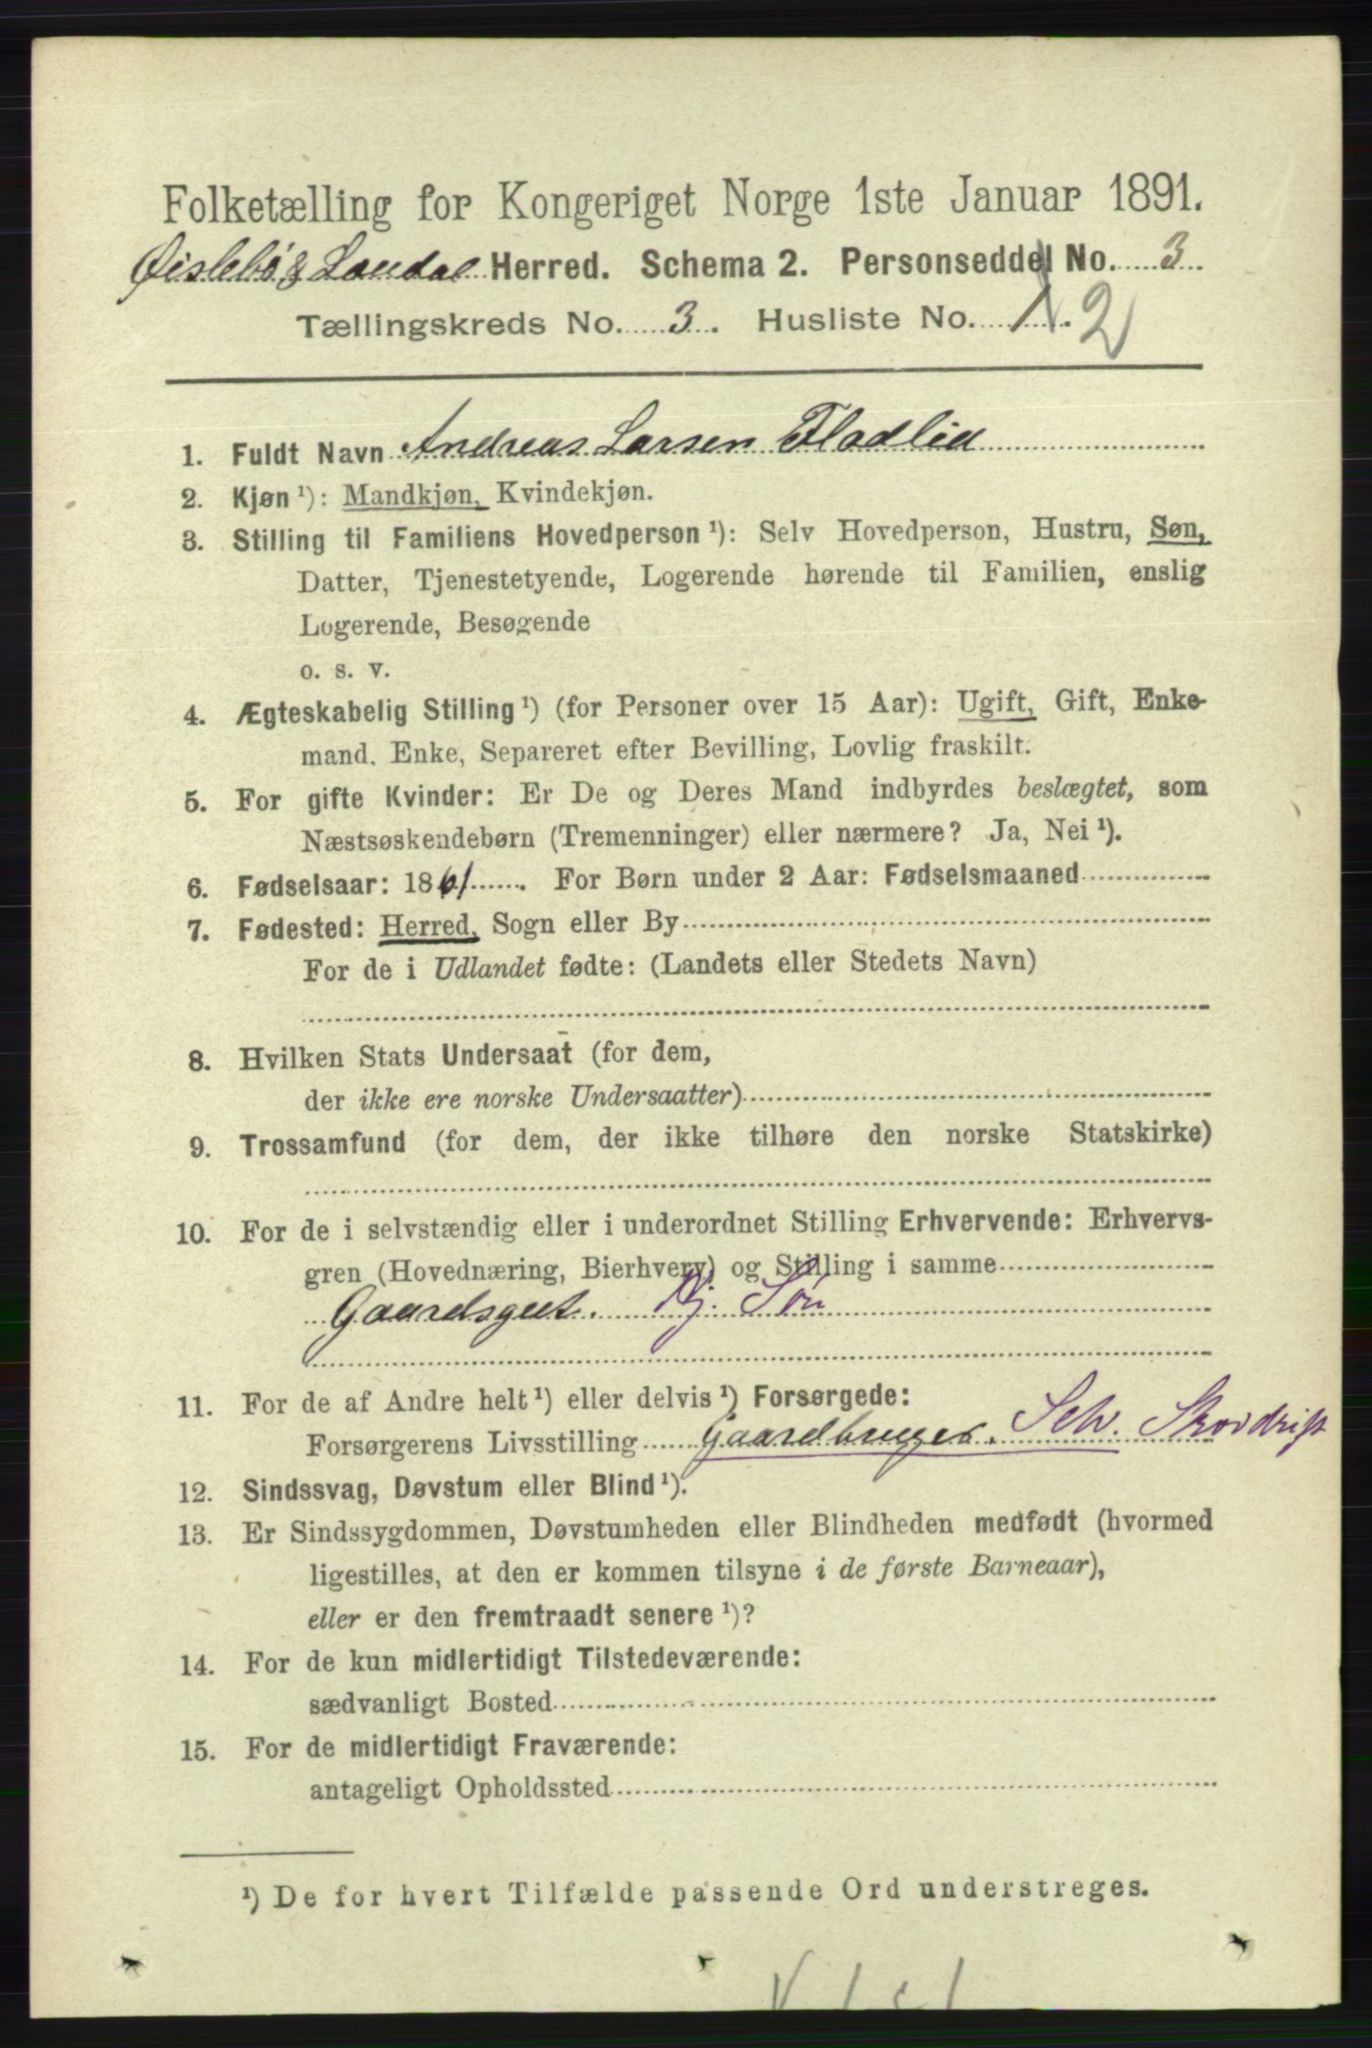 Folketælling for Kongeriget Norge 1ste Januar 1891.
Øislebö & Laudal Herred. Schema 2. Personseddel No. 3
Tællingskreds No. 3. Husliste No. 1. 2
1. Fuldt Navn Andreas Larsen Fladlid
2. Kjøn ¹): Mandkjøn, Kvindekjøn.
3. Stilling til Familiens Hovedperson ¹): Selv Hovedperson, Hustru, Søn,
Datter, Tjenestetyende, Logerende hørende til Familien, enslig
Logerende, Besøgende
o. s. v.
4. Ægteskabelig Stilling ¹) (for Personer over 15 Aar): Ugift, Gift, Enke-
mand, Enke, Separeret efter Bevilling, Lovlig fraskilt.
5. For gifte Kvinder: Er De og Deres Mand indbyrdes beslægtet, som
Næstsøskendebørn (Tremenninger) eller nærmere? Ja, Nei ¹).
6. Fødselsaar: 1861. For Børn under 2 Aar: Fødselsmaaned
7. Fødested: Herred, Sogn eller By
For de i Udlandet fødte: (Landets eller Stedets Navn)
8. Hvilken Stats Undersaat (for dem,
der ikke ere norske Undersaatter)
9. Trossamfund (for dem, der ikke tilhøre den norske Statskirke)
10. For de i selvstændig eller i underordnet Stilling Erhvervende: Erhvervs-
gren (Hovednæring, Bierhverv) og Stilling i samme
Gaardsgut. Sön
11. For de af Andre helt ¹) eller delvis ¹) Forsørgede:
Forsørgerens Livsstilling Gaardbruger. Selv. Skovdrift
12. Sindssvag, Døvstum eller Blind ¹).
13. Er Sindssygdommen, Døvstumheden eller Blindheden medfødt (hvormed
ligestilles, at den er kommen tilsyne i de første Barneaar),
eller er den fremtraadt senere ¹)?
14. For de kun midlertidigt Tilstedeværende:
sædvanligt Bosted
15. For de midlertidigt Fraværende:
antageligt Opholdssted
¹) De for hvert Tilfælde passende Ord understreges.